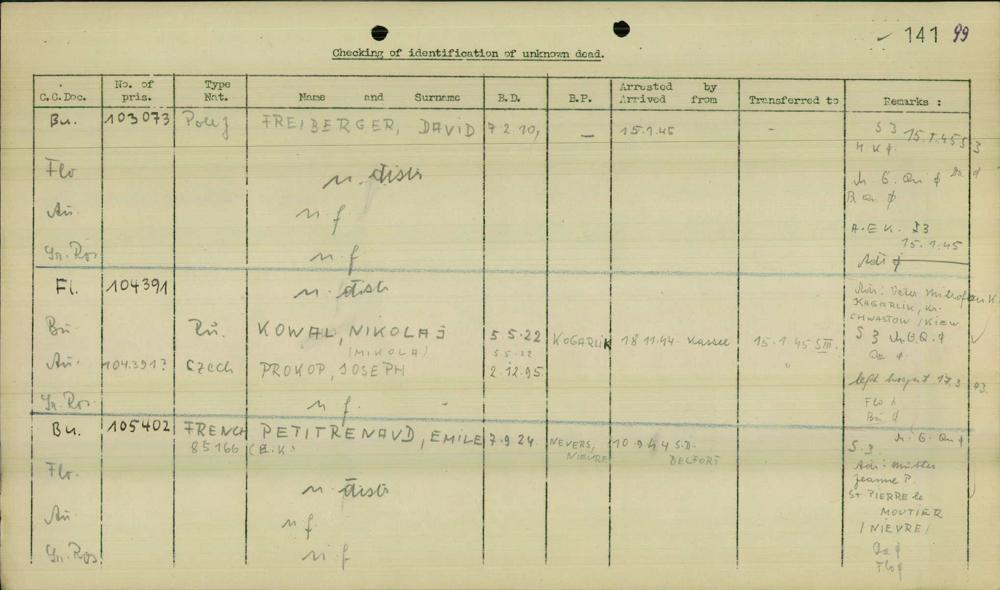 141 99
Checking of identification of unknown dead.
C.C.Doc. No. of pris. Type Nat. Name and Surname B.D. B.P. Arrested by Arrived from Transferred to Remarks :
Bu. 103073 FREIBERGER, DAVID 7 2.10, — 15.1.45 - S 3 15.1.45 S 3
Flo n. distr
Au. n f
A.E.K. S3
15.1.45
Gr. Ros n f.
Fl. 104391 n. distr
KAGARLIK, Kr.
CHWASTOW / KIEW
Bu. Ru. KOWAL, NIKOLAJ 5 5.22 KOGARLIK 18 11.44 Kassel 15.1.45 SIII. S 3
(MIKOLA) 5.5.22
Au. 104391? Czech PROKOP, JOSEPH 2.12.95 "
Gr. Ros. n f. Flo
Bu.
Bu. 105402 FRENCH PETITRENAUD, EMILE 7.9.24. NEVERS, NIEVRE 10.9.44 S.D. BELFORT S.3
85166 (B.K.)
Flo. n. distr
Adr: Mutter
Jeanne P.
St PIERRE le
MOUTIER
/NIEVRE/
Au. n f.
Gr. Ros. n. f
Flo